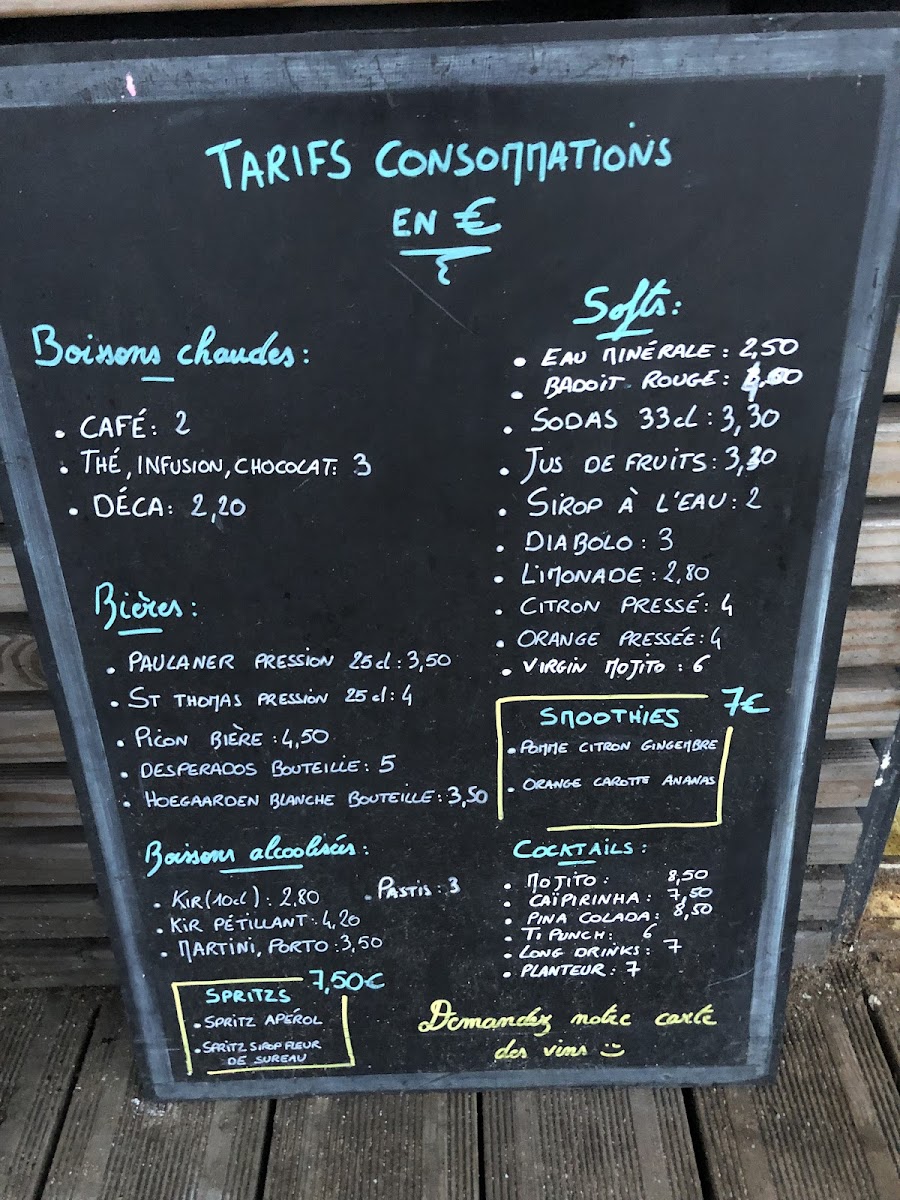 TARIFS CONSOMMATIONS
EN €
Boissons chaudes:
• CAFÉ: 2
• THÉ, INFUSION, CHOCOLAT: 3
• DÉCA: 2,20
Bières:
• PAULANER PRESSION 25cl: 3,50
• ST THOMAS PRESSION 25cl: 4
• PICON BIÈRE: 4,50
• DESPERADOS BOUTEILLE: 5
• HOEGAARDEN BLANCHE BOUTEILLE: 3,50
Boissons alcoolisées:
• KIR (10cl): 2,80
• PASTIS: 3
• KIR PÉTILLANT: 4,20
• MARTINI, PORTO: 3,50
7,50€
SPRITZS
• SPRITZ APÉROL
• SPRITZ SIROP FLEUR
DE SUREAU
Softs:
• EAU MINÉRALE: 2,50
• BADOIT ROUGE:
• SODAS 33cl: 3,30
• JUS DE FRUITS: 3,30
• SIROP À L'EAU: 2
• DIABOLO: 3
• LIMONADE: 2,80
• CITRON PRESSÉ: 4
• ORANGE PRESSÉE: 4
• VIRGIN MOJITO: 6
7€
SMOOTHIES
• POMME CITRON GINGEMBRE
• ORANGE CAROTTE ANANAS
COCKTAILS:
• MOJITO: 8,50
• CAÏPIRINHA: 7,50
• PINA COLADA: 8,50
• TI PUNCH: 6
• LONG DRINKS: 7
• PLANTEUR: 7
Demandez notre carte
des vins :)